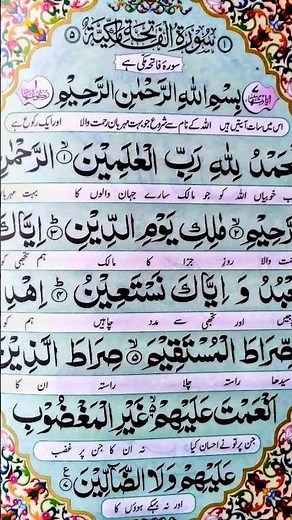 سُوْرَةُ الْفَاتِحَةِ مَكِّيَّةٌ
سورۂ فاتحہ مکی ہے
بِسْمِ اللّٰهِ الرَّحْمٰنِ الرَّحِيْمِ
اس میں سات آیتیں ہیں اللہ کے نام سے شروع جو بہت مہربان رحمت والا اور ایک رکوع ہے
حَمْدُ لِلّٰهِ رَبِّ الْعٰلَمِيْنَ ۱ الرَّحْمٰنِ
سب خوبیاں اللہ کو جو مالک سارے جہان والوں کا بہت مہربان
رَّحِيْمِ ۲ مٰلِكِ يَوْمِ الدِّيْنِ ۳ اِيَّاكَ
رحمت والا روز جزا کا مالک ہم تجھی کو
عْبُدُ وَ اِيَّاكَ نَسْتَعِيْنُ ۴ اِهْدِ
اور تجھی سے مدد چاہیں ہم کو
صِّرَاطَ الْمُسْتَقِيْمَ ۵ صِرَاطَ الَّذِيْنَ
سیدھا راستہ چلا راستہ ان کا
اَنْعَمْتَ عَلَيْهِمْ ۶ غَيْرِ الْمَغْضُوْبِ
جن پر تو نے احسان کیا نہ ان کا جن پر غضب
عَلَيْهِمْ وَلَا الضَّآلِّيْنَ ۷
اور نہ بہکے ہوؤں کا